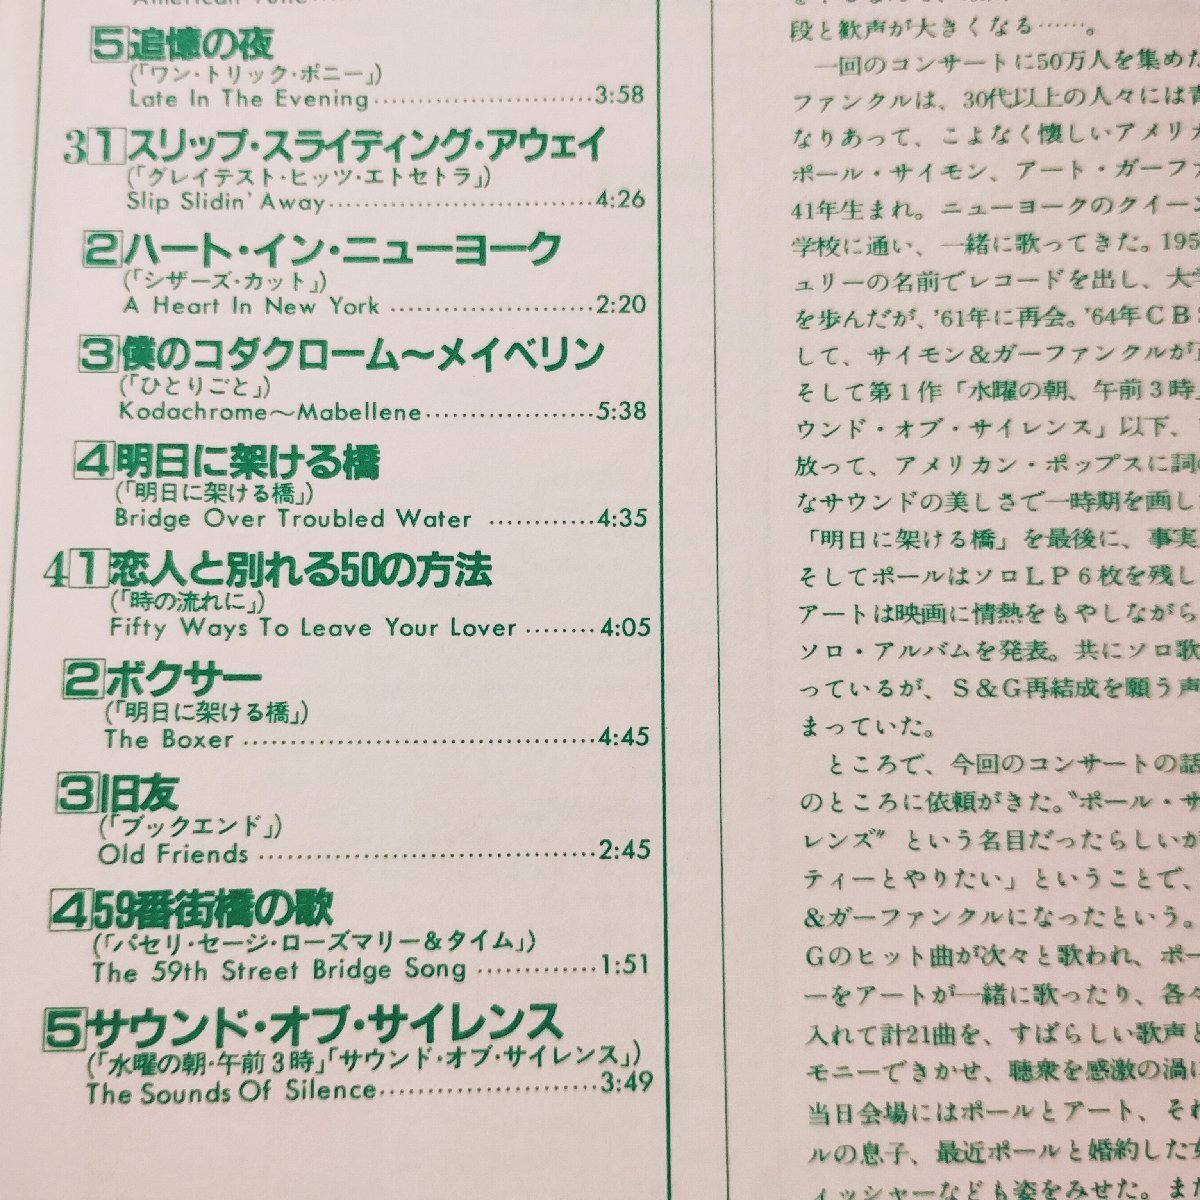 American Tune
5 追憶の夜
(「ワン・トリック・ポニー」)
Late In The Evening……………………3:58
3 1 スリップ・スライディング・アウェイ
(「グレイテスト・ヒッツ・エトセトラ」)
Slip Slidin' Away……………………4:26
2 ハート・イン・ニューヨーク
(「シザーズ・カット」)
A Heart In New York……………………2:20
3 僕のコダクローム〜メイベリン
(「ひとりごと」)
Kodachrome〜Mabellene……………………5:38
4 明日に架ける橋
(「明日に架ける橋」)
Bridge Over Troubled Water …………4:35
4 1 恋人と別れる50の方法
(「時の流れに」)
Fifty Ways To Leave Your Lover ………4:05
2 ボクサー
(「明日に架ける橋」)
The Boxer……………………………4:45
3 旧友
(「ブックエンド」)
Old Friends……………………………2:45
4 59番街橋の歌
(「パセリ・セージ・ローズマリー&タイム」)
The 59th Street Bridge Song …………1:51
5 サウンド・オブ・サイレンス
(「水曜の朝・午前3時」「サウンド・オブ・サイレンス」)
The Sounds Of Silence……………………3:49
段と歓声が大きくなる……。
一回のコンサートに50万人を集めた
ファンクルは、30代以上の人々には青
なりあって、こよなく懐しいアメリカ
ポール・サイモン、アート・ガーファ
41年生まれ。ニューヨークのクイーン
学校に通い、一緒に歌ってきた。195
ェリーの名前でレコードを出し、大学
を歩んだが、'61年に再会。'64年CBS
して、サイモン&ガーファンクルが
そして第1作「水曜の朝、午前3時」
ウンド・オブ・サイレンス」以下、
放って、アメリカン・ポップスに詞の
なサウンドの美しさで一時期を画し
「明日に架ける橋」を最後に、事実
そしてポールはソロLP6枚を残し
アートは映画に情熱をもやしながら
ソロ・アルバムを発表。共にソロ歌
っているが、S&G再結成を願う声
まっていた。
ところで、今回のコンサートの話
のところに依頼がきた。〝ポール・サ
レンズ〟という名目だったらしいが
ティーとやりたい」ということで、
&ガーファンクルになったという。
Gのヒット曲が次々と歌われ、ポー
ーをアートが一緒に歌ったり、各々
入れて計21曲を、すばらしい歌声と
モニーできかせ、聴衆を感激の渦に
当日会場にはポールとアート、それ
ルの息子、最近ポールと婚約した女
ィッシャーなども姿をみせた。また